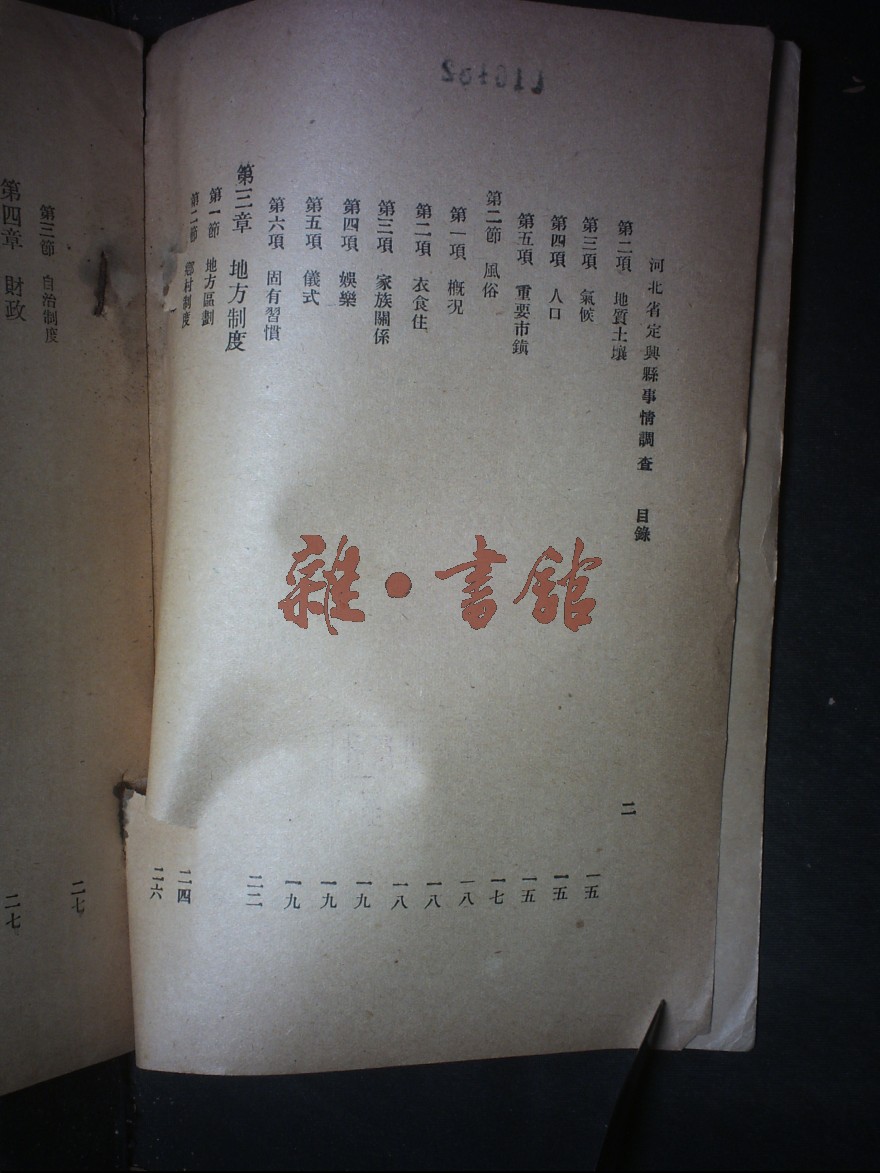 河北省定興縣事情調查 目錄 二
第二項 地質土壤 一五
第三項 氣候 一五
第四項 人口 一五
第五項 重要市鎮 一七
第二節 風俗 一八
第一項 概況 一八
第二項 衣食住 一八
第三項 家族關係 一九
第四項 娛樂 一九
第五項 儀式 一九
第六項 固有習慣 二二
第三章 地方制度
第一節 地方區劃 二四
第二節 鄉村制度 二六
第三節 自治制度 二七
第四章 財政 二七
雜·書舘